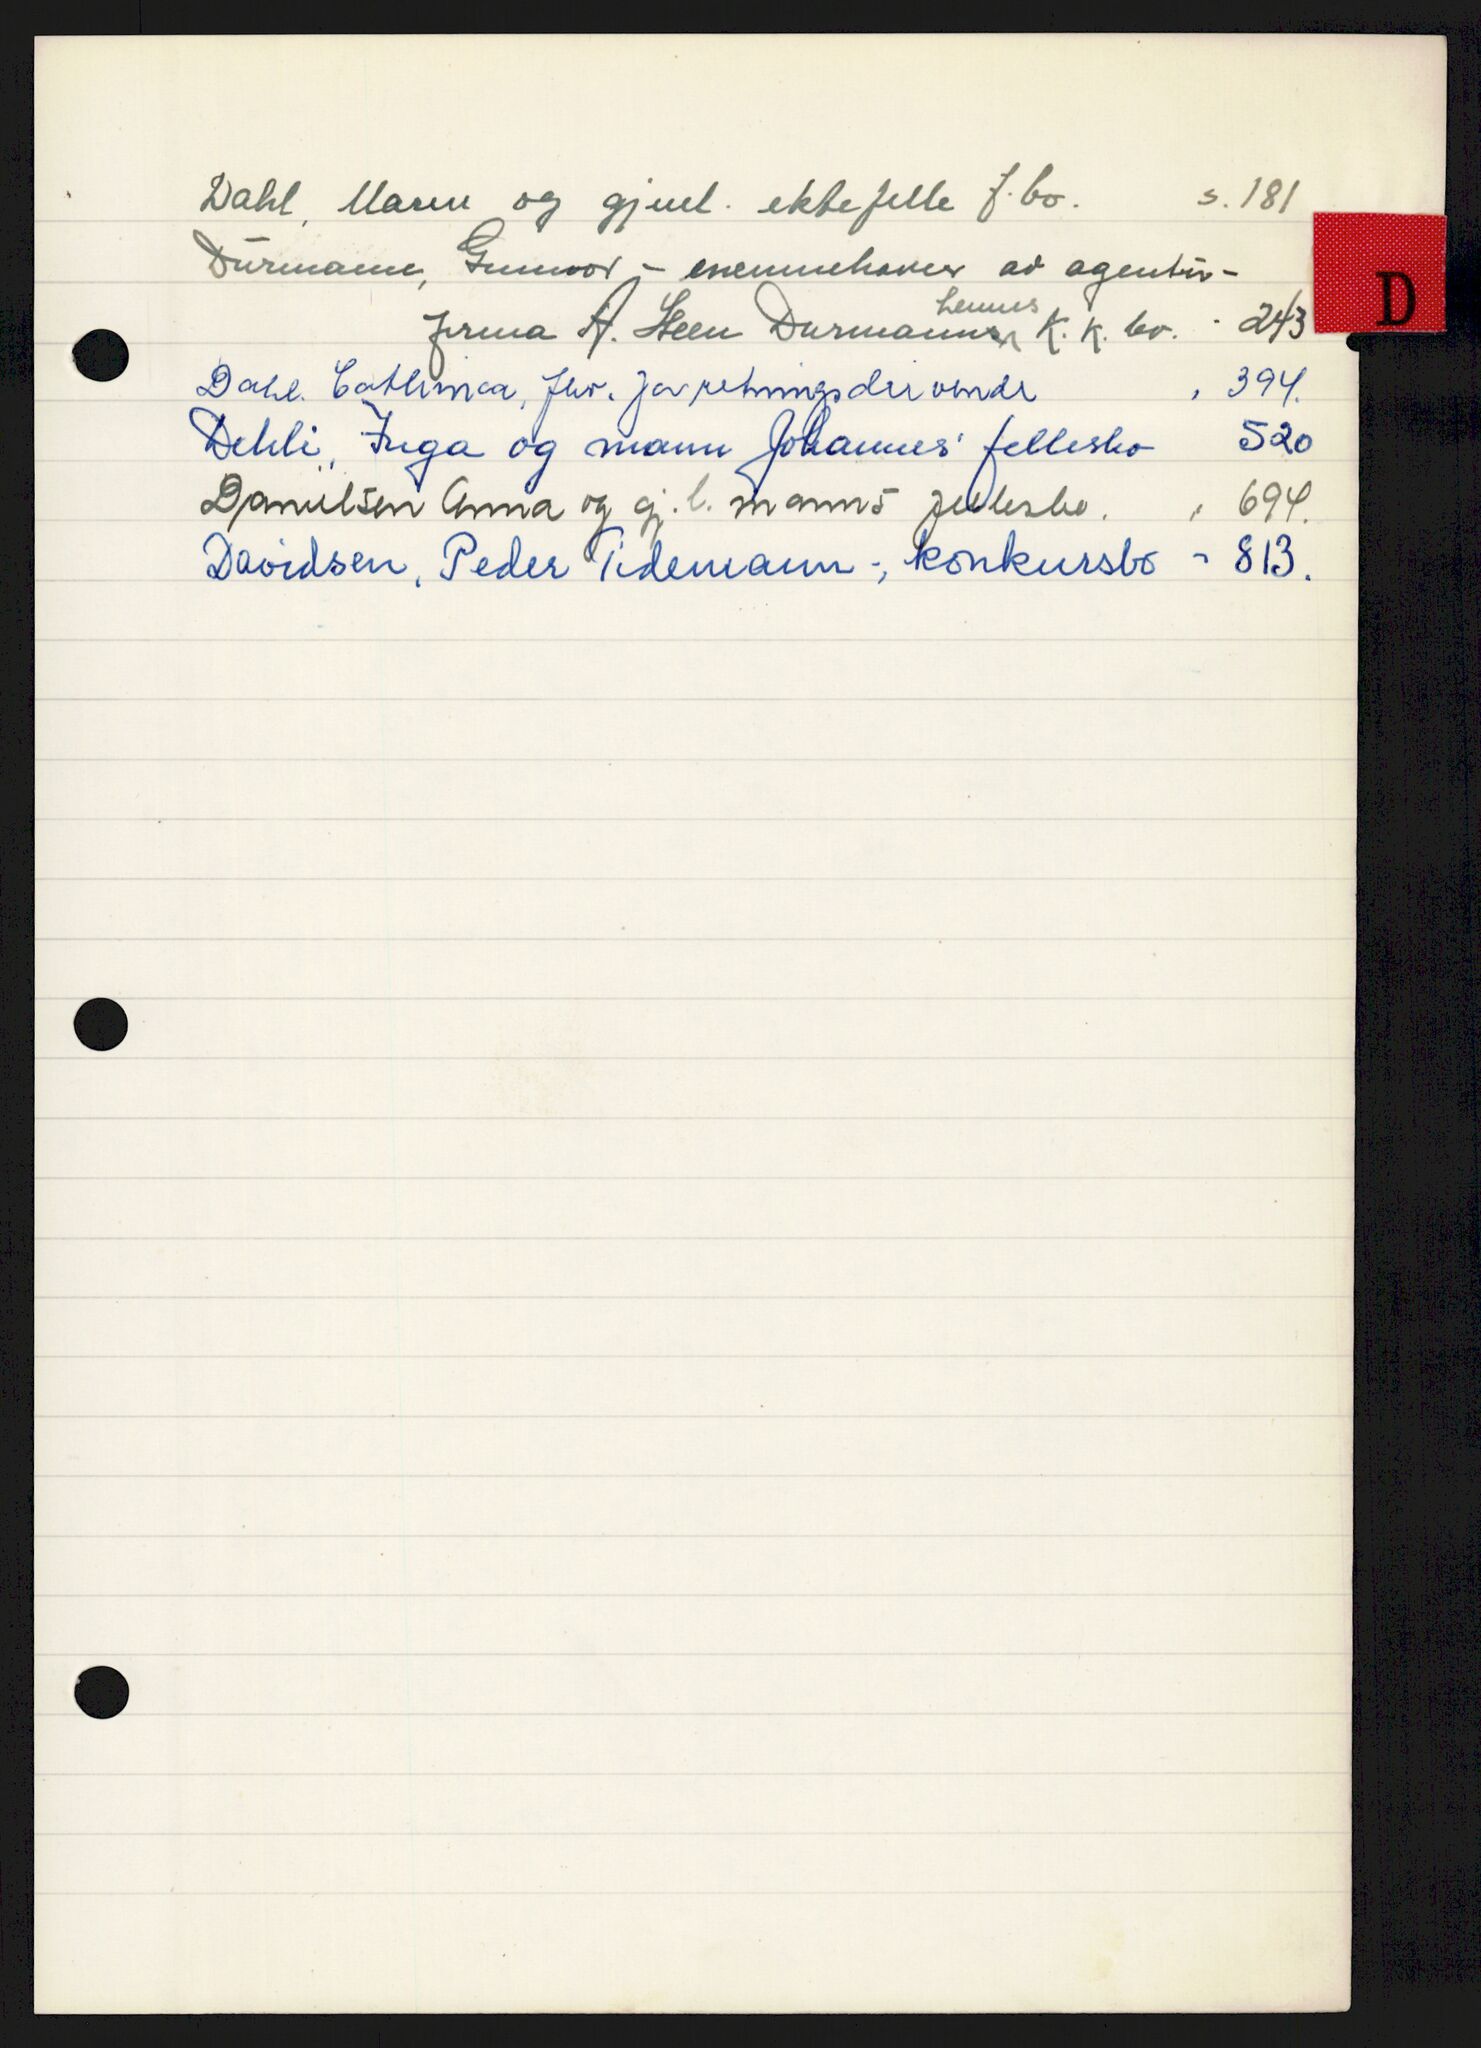 Dahl, Maren og gjenl. ektefelle f.bo. s. 181
Dürmann, Gunvor - eneinnehaver av agentur-
firma A. Steen Durmann hennes K.K. bo. - 243
D
Dahl. Cathinca, fhv. forretningsdrivende , 394.
Dehli, Inga og mann Johannes' fellesbo 520
Danielsen Anna og gj.l. manns fellesbo. , 694.
Davidsen, Peder Tidemann -, konkursbo - 813.